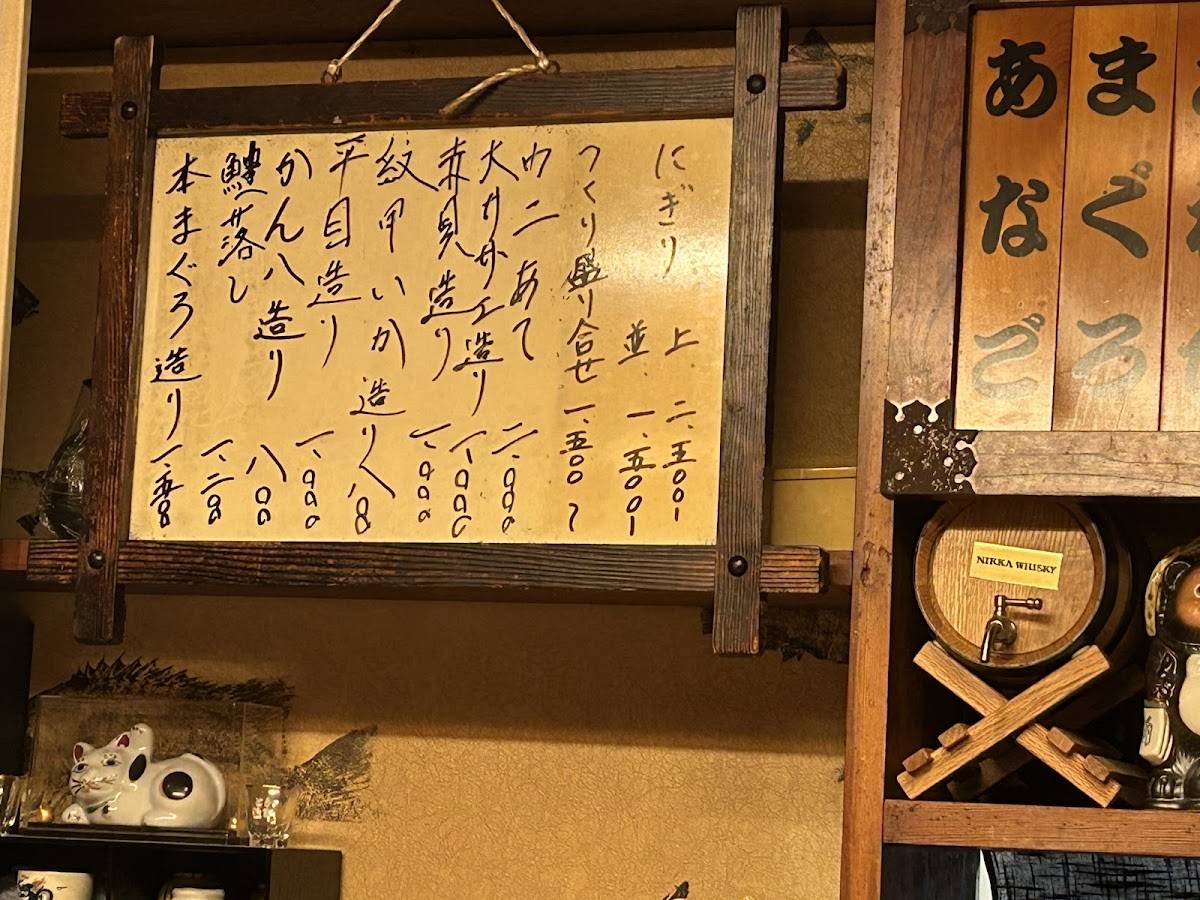 にぎり 上 二、五〇〇〜
並 一、五〇〇〜
つくり盛り合せ 一、五〇〇〜
ウニあて 二、〇〇〇
大サザエ造り 一、〇〇〇
赤貝造り 一、〇〇〇
紋甲いか造り 八〇〇
平目造り 一、〇〇〇
かん八造り 八〇〇
鱧落し 一、二〇〇
本まぐろ造り 一、五〇〇
まぐろ
あなご
NIKKA WHISKY